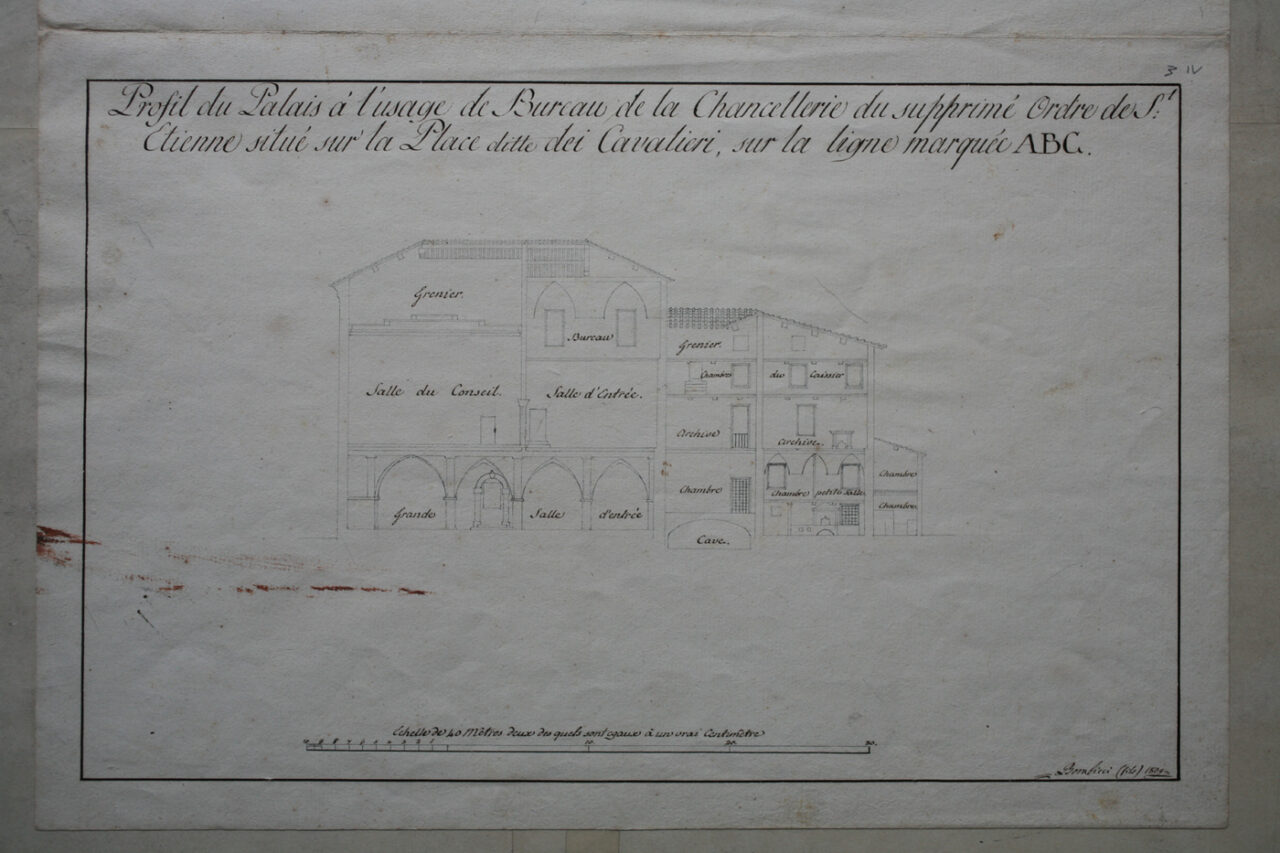 3 IV
Profil du Palais á l'usage de Bureau de la Chancellerie du supprimé Ordre de S.t
Etienne situé sur la Place ditte dei Cavalieri, sur la ligne marquée ABC.
Grenier.
Bureau
Grenier.
Chambre du Caissier
Salle du Conseil.
Salle d'Entrée.
Archive
Archive.
Chambre
Chambre
Chambre petite Salle
Chambre
Grande Salle d'entrée
Cave.
Echelle de 40 Mètres deux des quels sont egaux à un vrai Centimètre
10. 20. 30.